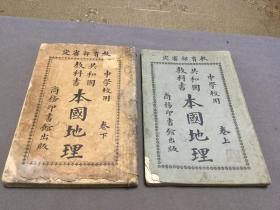 教育部審定
中學校用
卷下
共和國
教科書
本國地理
商務印書館出版
教育部審定
中學校用
卷上
共和國
教科書
本國地理
商務印書館出版